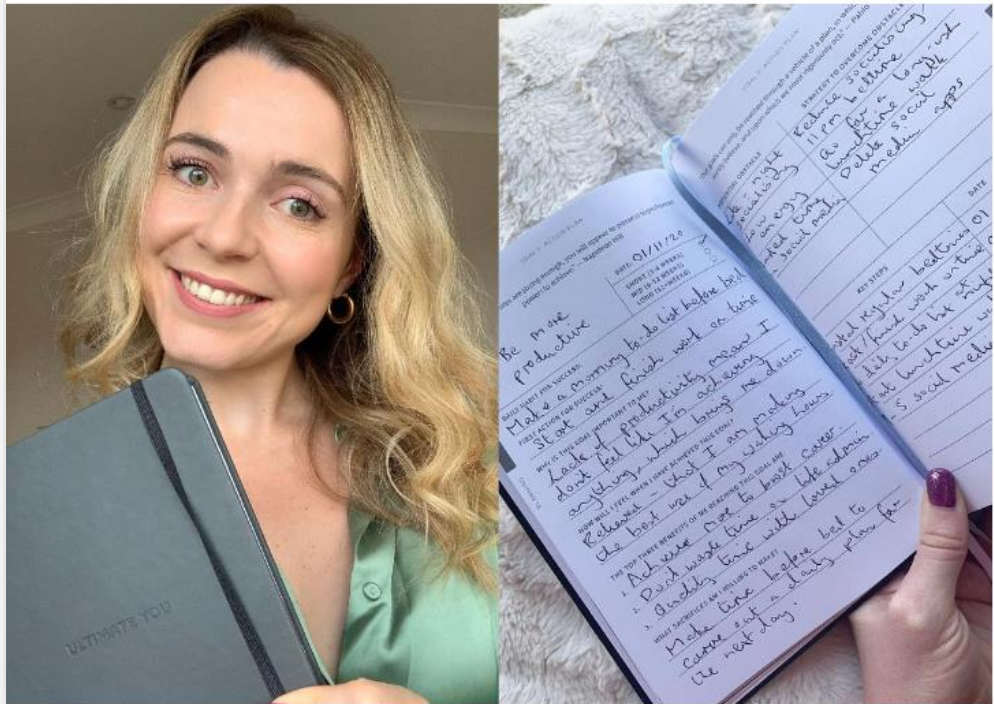 ULTIMATE YOU
GOAL 1 - ACTION PLAN
you will appear to possess superhuman
power to achieve." - Napoleon Hill
DATE: 01/11/20
SHORT (1-6 WEEKS)
MID (6-12 WEEKS)
LONG (12+ WEEKS)
Be more
productive
DAILY HABIT FOR SUCCESS:
Make a morning to-do list before bed
FIRST ACTION FOR SUCCESS:
Start and finish work on time
WHY IS THIS GOAL IMPORTANT TO ME?
Lack of productivity means I
don't feel like I'm achieving
anything, which brings me down
HOW WILL I FEEL WHEN I HAVE ACHIEVED THIS GOAL?
Relieved - that I am making
the best use of my waking hours
THE TOP THREE BENEFITS OF ME REACHING THIS GOAL ARE
1. Achieve more to boost career.
2. Don't waste time on life admin
3. Quality time with loved ones.
WHAT SACRIFICES AM I WILLING TO MAKE?
Make time before bed to
carve out a daily plan for
the next day.
GOAL 1 - ACTION PLAN
can only be reached through a vehicle of a plan, in which
believe, and upon which we must vigorously act." - Pablo
POTENTIAL OBSTACLE
STRATEGY TO OVERCOME OBSTACLE
night
socialising
Reduce socialising/
11pm bedtime
enjoy
time
Go for a longish
lunchtime walk
social media
Delete social
media apps
KEY STEPS
DATE
regular bedtimes
01
/finish work on time
to-do list at
lunchtime
social media